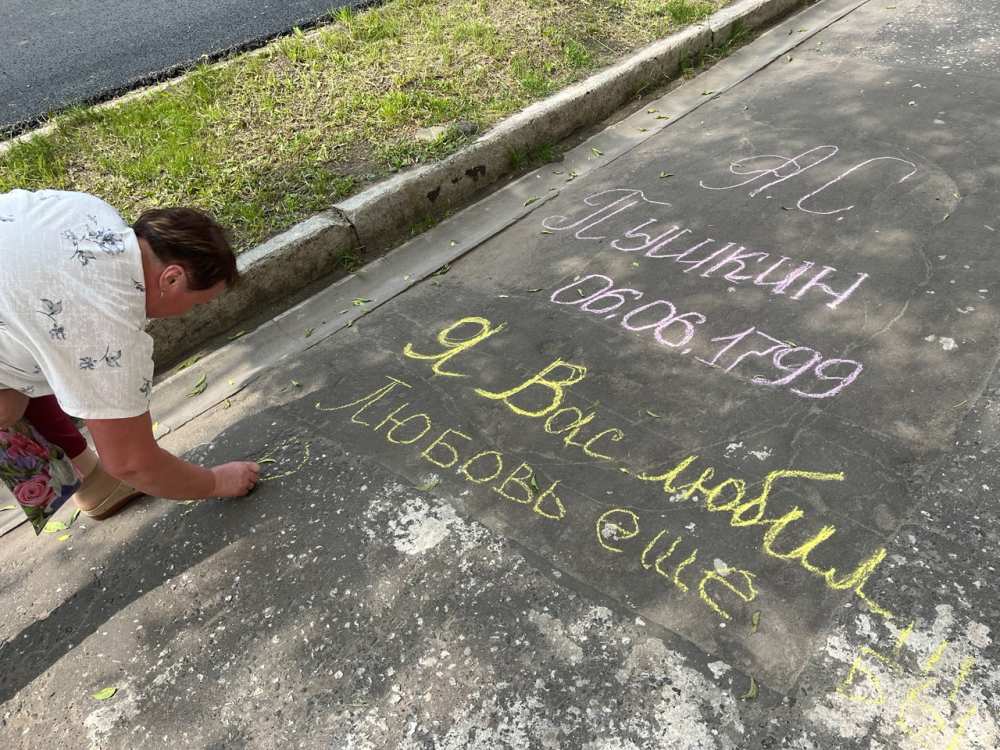 А С
Пушкин
06.06.1799
Я Вас любил
Любовь еще